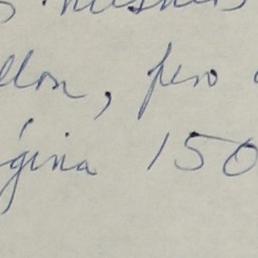 llon, pero
ágina 150